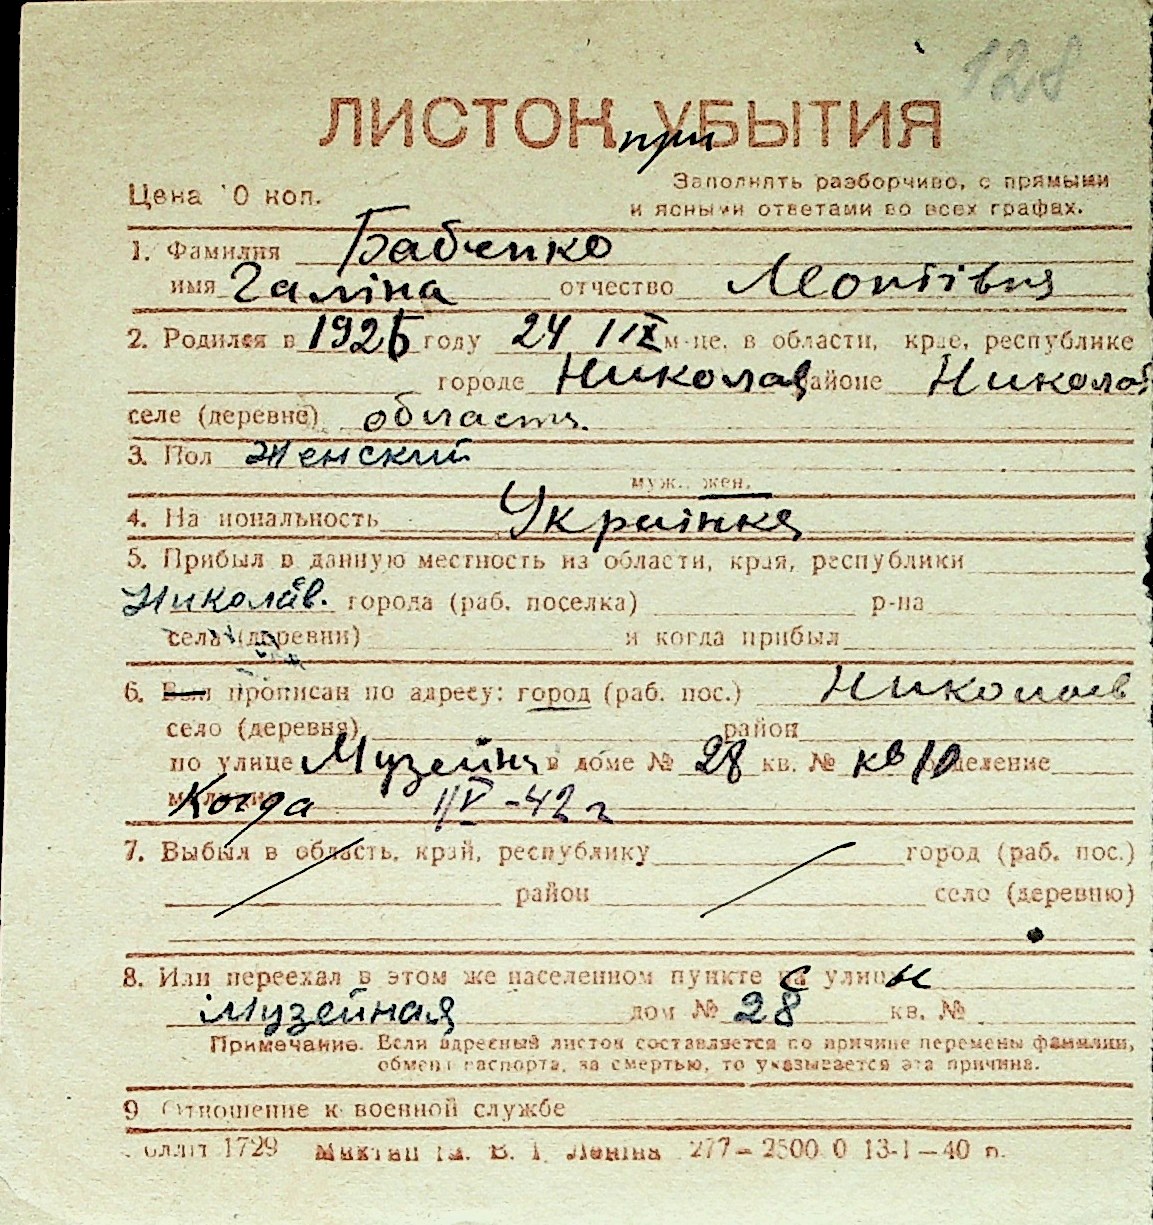 128
ЛИСТОК при УБЫТИЯ
Цена 10 коп.
Заполнять разборчиво, с прямыми
и ясными ответами во всех графах.
1. Фамилия Бабченко
имя Галіна отчество
2. Родился в 1925 году 24 IX м-це, в области, крае, республике
городе Николаев районе Никола
селе (деревне) область
3. Пол Женский
муж., жен.
4. Национальность Украінка
5. Прибыл в данную местность из области, края, республики
Николаев. города (раб. поселка) р-на
села (деревни) и когда прибыл
6. Был прописан по адресу: город (раб. пос.) Николаев
село (деревня) район
по улице Музейня в доме № 28 кв. № кв 10 отделение
милиции Когда 1/V-42 г
7. Выбыл в область, край, республику город (раб. пос.)
район село (деревню)
8. Или переехал в этом же населенном пункте с улицы
Музейная дом № 28 кв. №
Примечание. Если адресный листок составляется по причине перемены фамилии,
обмена паспорта, за смертью, то указывается эта причина.
9 Отношение к военной службе
1729 ім. В. І. Леніна 277—2500.0 13-I—40 п.